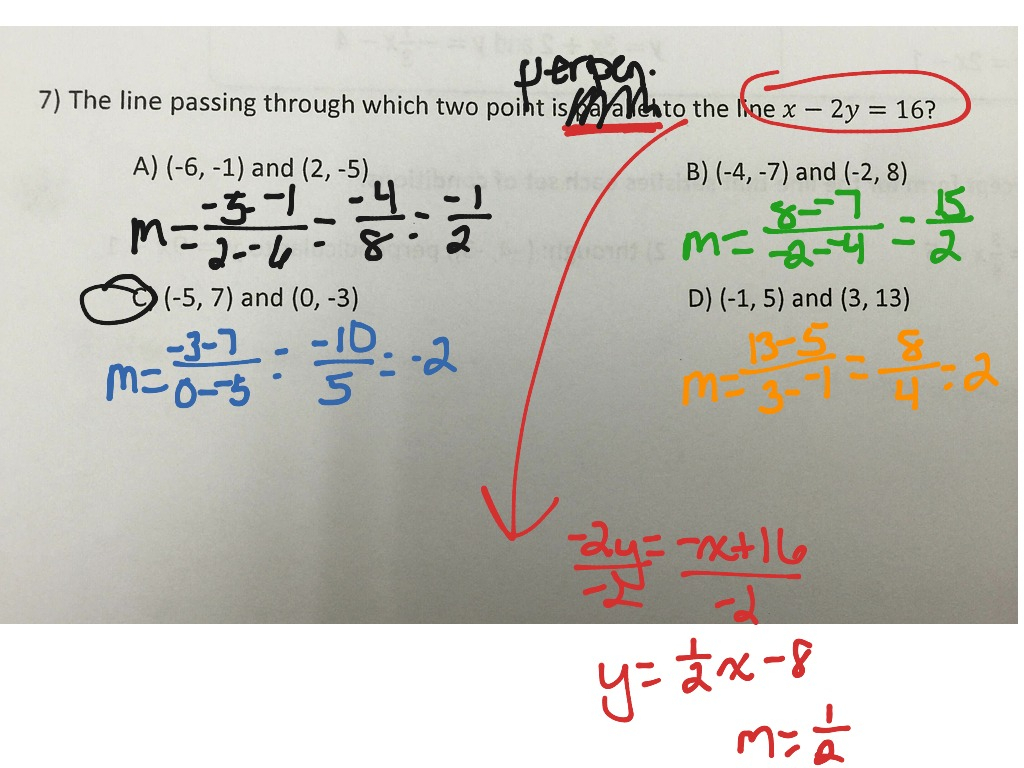 perpen.
7) The line passing through which two point is parallel to the line x − 2y = 16?
A) (-6, -1) and (2, -5)
B) (-4, -7) and (-2, 8)
m = -5--1/2--6 = -4/8 = -1/2
m = 8--7/-2--4 = 15/2
C) (-5, 7) and (0, -3)
D) (-1, 5) and (3, 13)
m = -3-7/0--5 = -10/5 = -2
m = 13-5/3--1 = 8/4 = 2
-2y/-2 = -x+16/-2
y = 1/2 x - 8
m = 1/2